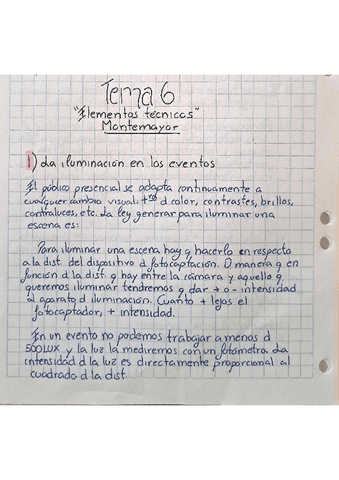 Tema 6
"Elementos técnicos"
Montemayor
1) La iluminación en los eventos
El público presencial se adapta continuamente a
cualquier cambio visual: tno d color, contrastes, brillos,
contraluces, etc. La ley generar para iluminar una
escena es:
Para iluminar una escena hay q hacerlo en respecto
a la dist. del dispositivo d fotocaptación. D manera q en
función d la dist. q hay entre la cámara y aquello q
queremos iluminar tendremos q dar + o - intensidad
al aparato d iluminación. Cuanto + lejos el
fotocaptador, + intensidad.
En un evento no podemos trabajar a menos d
500LUX y la luz la mediremos con un fotómetro. La
intensidad d la luz es directamente proporcional al
cuadrado d la dist.